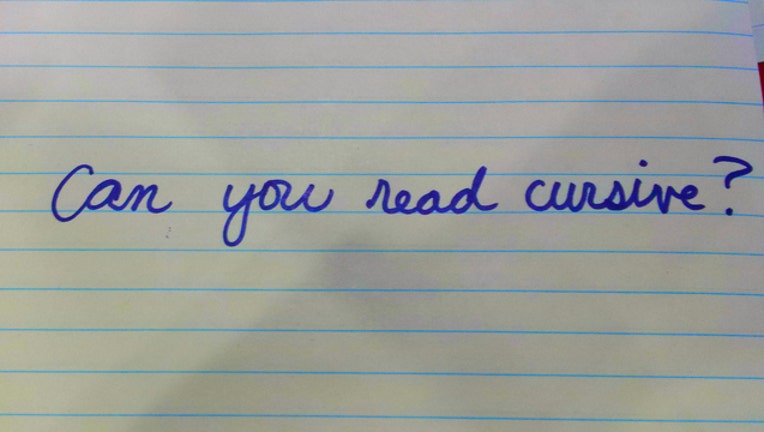 Can you read cursive?